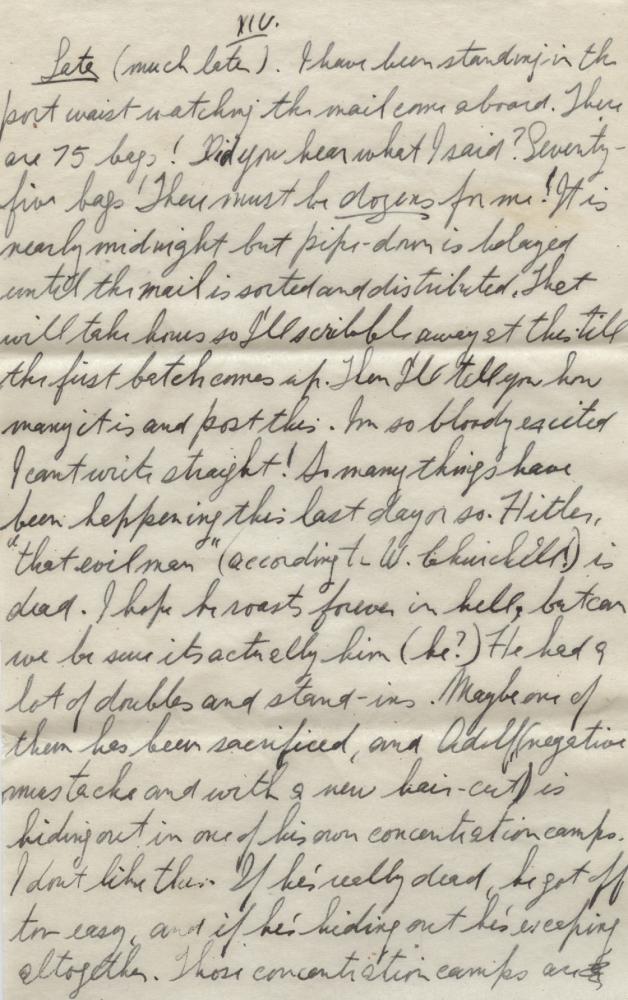 XIV.
Late (much later). I have been standing in the
port waist watching the mail come aboard. There
are 75 bags! Did you hear what I said? Seventy-
five bags! There must be dozens for me! It is
nearly midnight but pipe-down is belayed
until the mail is sorted and distributed. That
will take hours so I'll scribble away at this till
the first batch comes up. Then I'll tell you how
many it is and post this. I'm so bloody excited
I cant write straight! So many things have
been happening this last day or so. Hitler,
"that evil man" (according to W. Churchill!) is
dead. I hope he roasts forever in hell, but can
we be sure its actually him (he?) He had a
lot of doubles and stand-ins. Maybe one of
them has been sacrificed, and Adolf (negative
mustache and with a new hair-cut) is
hiding out in one of his own concentration camps.
I dont like this. If he's really dead, he got off
too easy, and if he's hiding out he's escaping
altogether. Those concentration camps are